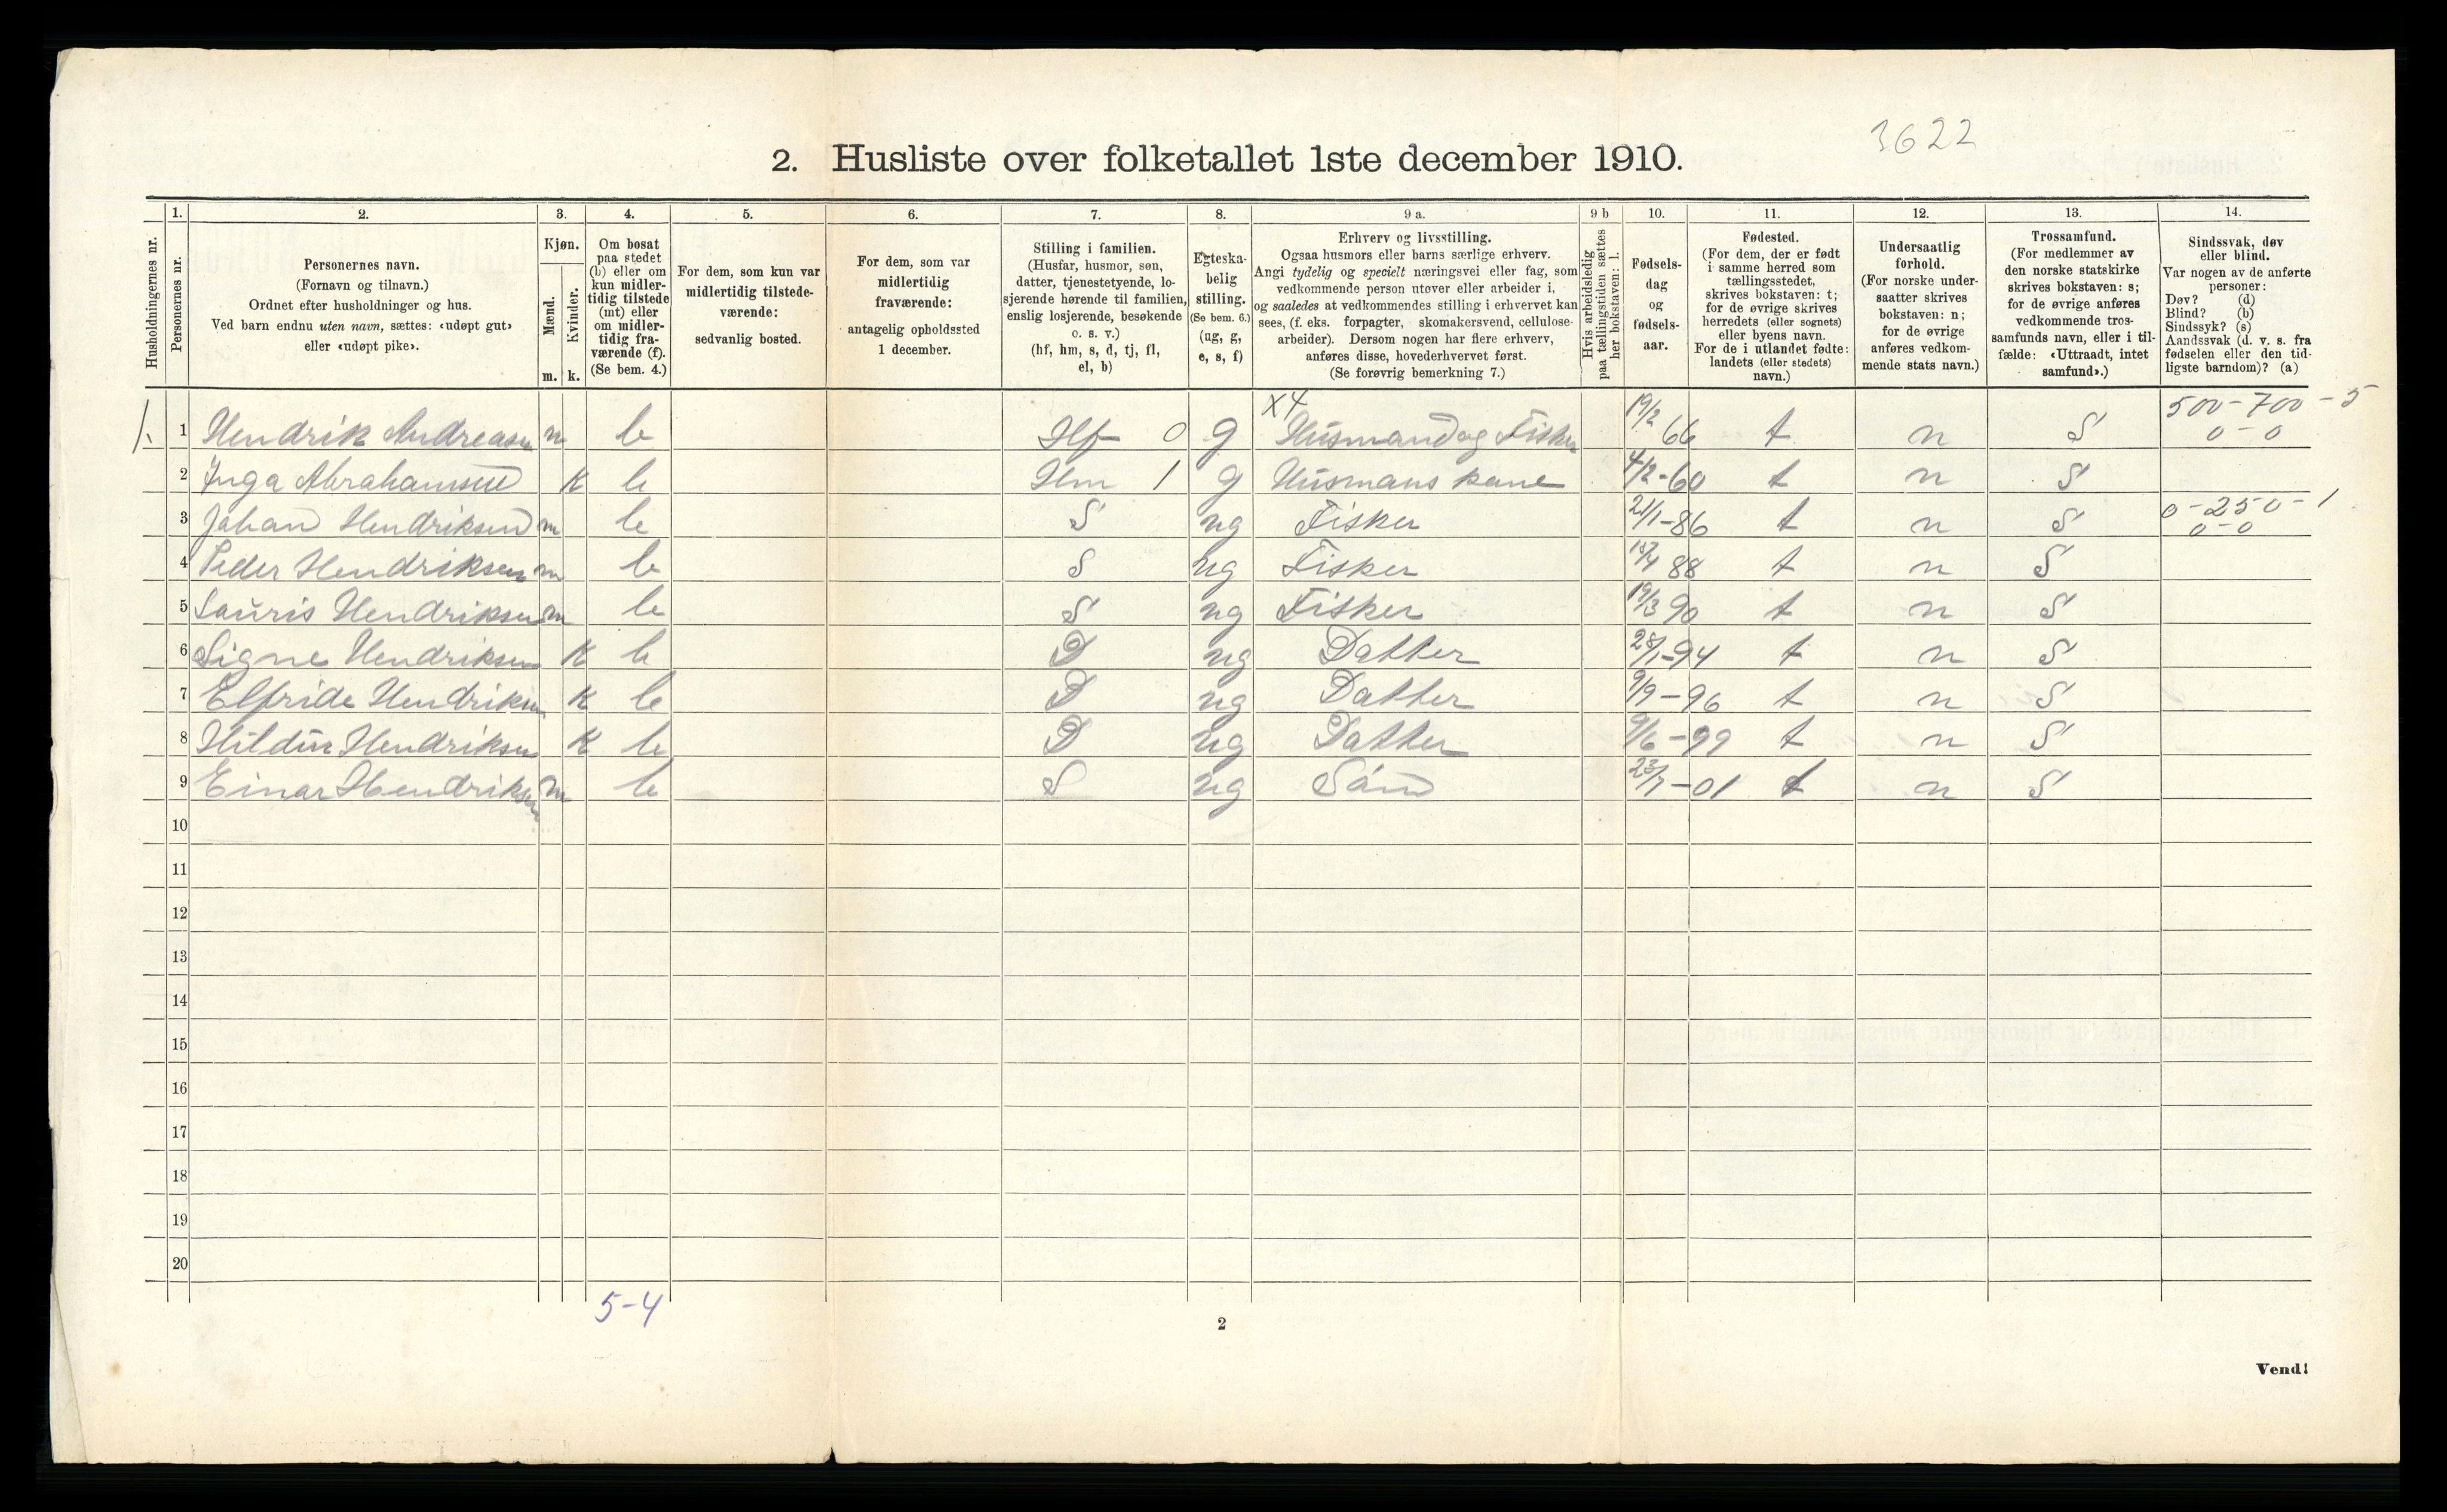 3622
2. Husliste over folketallet 1ste december 1910.
Husholdningernes nr.
1.
Personernes nr.
2.
Personernes navn.
(Fornavn og tilnavn.)
Ordnet efter husholdninger og hus.
Ved barn endnu uten navn, sættes: «udøpt gut»
eller «udøpt pike».
3.
Kjøn.
Mænd.
Kvinder.
m. k.
4.
Om bosat
paa stedet
(b) eller om
kun midler-
tidig tilstede
(mt) eller
om midler-
tidig fra-
værende (f).
(Se bem. 4.)
5.
For dem, som kun var
midlertidig tilstede-
værende:
sedvanlig bosted.
6.
For dem, som var
midlertidig
fraværende:
antagelig opholdssted
1 december.
7.
Stilling i familien.
(Husfar, husmor, søn,
datter, tjenestetyende, lo-
sjerende hørende til familien,
enslig losjerende, besøkende
o. s. v.)
(hf, hm, s, d, tj, fl,
el, b)
8.
Egteska-
belig
stilling.
(Se bem. 6.)
(ug, g,
e, s, f)
9 a.
Erhverv og livsstilling.
Ogsaa husmors eller barns særlige erhverv.
Angi tydelig og specielt næringsvei eller fag, som
vedkommende person utøver eller arbeider i,
og saaledes at vedkommendes stilling i erhvervet kan
sees, (f. eks. forpagter, skomakersvend, cellulose-
arbeider). Dersom nogen har flere erhverv,
anføres disse, hovederhvervet først.
(Se forøvrig bemerkning 7.)
9 b
Hvis arbeidsledig
paa tællingstiden sættes
her bokstaven: l.
10.
Fødsels-
dag
og
fødsels-
aar.
11.
Fødested.
(For dem, der er født
i samme herred som
tællingsstedet,
skrives bokstaven: t;
for de øvrige skrives
herredets (eller sognets)
eller byens navn.
For de i utlandet fødte:
landets (eller stedets)
navn.)
12.
Undersaatlig
forhold.
(For norske under-
saatter skrives
bokstaven: n;
for de øvrige
anføres vedkom-
mende stats navn.)
13.
Trossamfund.
(For medlemmer av
den norske statskirke
skrives bokstaven: s;
for de øvrige anføres
vedkommende tros-
samfunds navn, eller i til-
fælde: «Uttraadt, intet
samfund».)
14.
Sindssvak, døv
eller blind.
Var nogen av de anførte
personer:
Døv? (d)
Blind? (b)
Sindssyk? (s)
Aandssvak (d. v. s. fra
fødselen eller den tid-
ligste barndom)? (a)
x4 500-700-5
1. 1 Hendrik Andreasen m b Hf 0 g Husmand og Fisker 19/2 66 t n S 0-0
2 Inga Abrahamsen k b Hm 1 g Husmans kone 4/2-60 t n S
3 Johan Hendriksen m b S ug Fisker 21/1-86 t n S 0-250-1
0-0
4 Peder Hendriksen m b S ug Fisker 88 t n S
5 Lauris Hendriksen m b S ug Fisker 19/3 90 t n S
6 Signe Hendriksen k b D ug Datter 28/1-94 t n S
7 Elfride Hendriksen k b D ug Datter 9/9-96 t n S
8 Hildur Hendriksen k b D ug Datter 9/6-99 t n S
9 Einar Hendriksen m b S ug Sön 23/7-01 t n S
10
11
12
13
14
15
16
17
18
19
20
5-4
2
Vend!